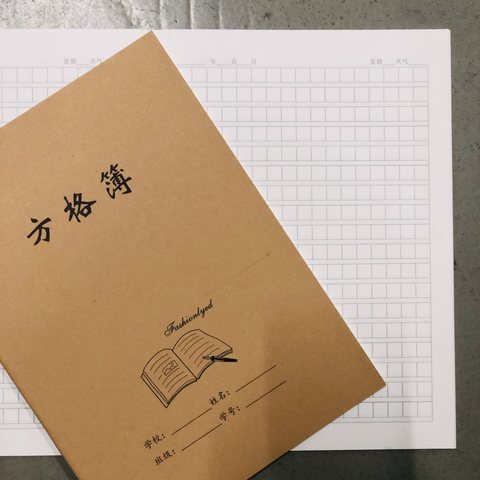 星期 天气
年 月 日
星期 天气
方格簿
Fashionlyed
学校：
姓名：
班级：
学号：